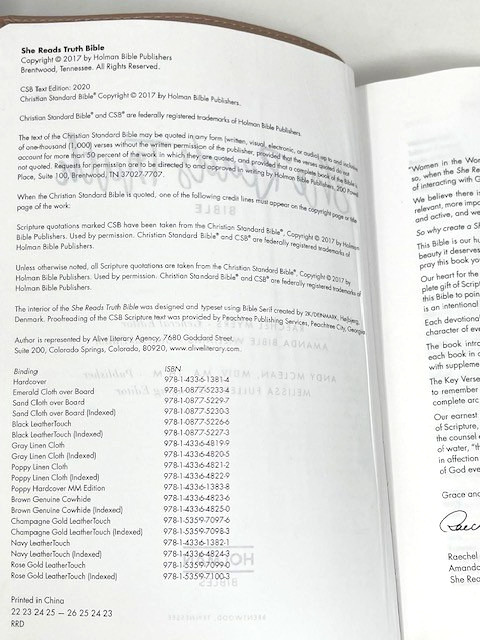 She Reads Truth Bible
Copyright © 2017 by Holman Bible Publishers
Brentwood, Tennessee. All Rights Reserved.
CSB Text Edition: 2020
Christian Standard Bible® Copyright © 2017 by Holman Bible Publishers.
Christian Standard Bible® and CSB® are federally registered trademarks of Holman Bible Publishers.
The text of the Christian Standard Bible may be quoted in any form (written, visual, electronic, or audio) up to and
of one-thousand (1,000) verses without the written permission of the publisher, provided that the verses quoted do not
account for more than 50 percent of the work in which they are quoted, and provided that a complete book of the Bible is
not quoted. Requests for permission are to be directed to and approved in writing by Holman Bible Publishers, 200 Powell
Place, Suite 100, Brentwood, TN 37027-7707.
When the Christian Standard Bible is quoted, one of the following credit lines must appear on the copyright page or title
page of the work:
Scripture quotations marked CSB have been taken from the Christian Standard Bible®, Copyright © 2017 by Holman
Bible Publishers. Used by permission. Christian Standard Bible® and CSB® are federally registered trademarks of
Holman Bible Publishers.
Unless otherwise noted, all Scripture quotations are taken from the Christian Standard Bible®, Copyright © 2017 by
Holman Bible Publishers. Used by permission. Christian Standard Bible® and CSB® are federally registered trademarks of
Holman Bible Publishers.
The interior of the She Reads Truth Bible was designed and typeset using Bible Serif created by 2K/DENMARK, Højbjerg,
Denmark. Proofreading of the CSB Scripture text was provided by Peachtree Publishing Services, Peachtree City, Georgia
Author is represented by Alive Literary Agency, 7680 Goddard Street,
Suite 200, Colorado Springs, Colorado, 80920, www.aliveliterary.com.
Binding ISBN
Hardcover 978-1-4336-1381-4
Emerald Cloth over Board 978-1-0877-5233-4
Sand Cloth over Board 978-1-0877-5229-7
Sand Cloth over Board (Indexed) 978-1-0877-5230-3
Black LeatherTouch 978-1-0877-5226-6
Black LeatherTouch (Indexed) 978-1-0877-5227-3
Gray Linen Cloth 978-1-4336-4819-9
Gray Linen Cloth (Indexed) 978-1-4336-4820-5
Poppy Linen Cloth 978-1-4336-4821-2
Poppy Linen Cloth (Indexed) 978-1-4336-4822-9
Poppy Hardcover MM Edition 978-1-4336-1383-8
Brown Genuine Cowhide 978-1-4336-4823-6
Brown Genuine Cowhide (Indexed) 978-1-4336-4825-0
Champagne Gold LeatherTouch 978-1-5359-7097-6
Champagne Gold LeatherTouch (Indexed) 978-1-5359-7098-3
Navy LeatherTouch 978-1-4336-1382-1
Navy LeatherTouch (Indexed) 978-1-4336-4824-3
Rose Gold LeatherTouch 978-1-5359-7099-0
Rose Gold LeatherTouch (Indexed) 978-1-5359-7100-3
Printed in China
22 23 24 25 — 26 25 24 23
RRD
"Women in the Wor
so, when the She Re
of interacting with G
We believe there is
relevant, more impor
and active, and we
So why create a S
This Bible is our hu
beauty it deserves
pray this book yo
Our heart for the
plete gift of Script
this Bible to poin
is an intentional
Each devotional
character of eve
The book intro
each book in c
with suppleme
The Key Verse
to remember
complete arc
Our earnest
of Scripture,
the counsel
of water, "th
in affection
of God eve
Grace and
Raechel
Amanda
She Rea